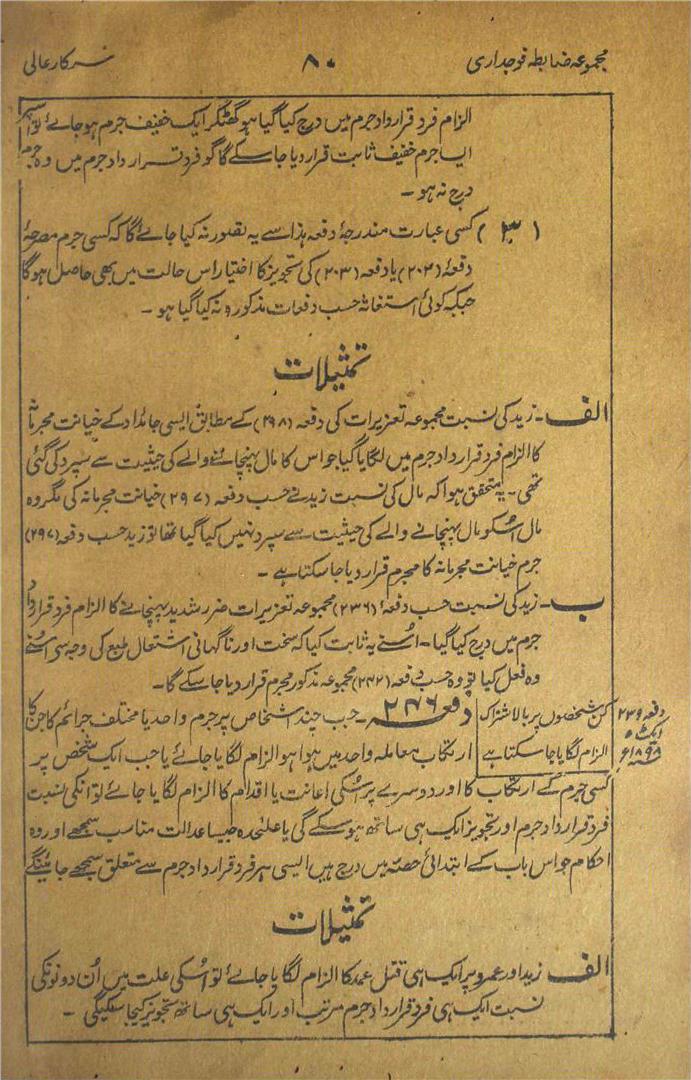 مجموعہ ضابطہ فوجداری
۸۰
سرکار عالی
الزام فرد قرارداد جرم میں درج کیا گیا ہو گھٹکر ایک خفیف جرم ہو جائے تو اسے
ایسا جرم خفیف ثابت قرار دیا جا سکے گا گو فرد قرارداد جرم میں وہ جرم
درج نہ ہو۔
(۳) کسی عبارت مندرجۂ دفعہ ہذا سے یہ تصور نہ کیا جائے گا کہ کسی جرم مصرحۂ
دفعۂ (۲۰۲) یا دفعہ (۲۰۳) کی تجویز کا اختیار اس حالت میں بھی حاصل ہوگا
جبکہ کوئی استغاثہ حسب دفعات مذکورہ نہ کیا گیا ہو۔
تمثیلات
الف۔ زید کی نسبت مجموعہ تعزیرات کی دفعہ (۲۹۸) کے مطابق ایسی جائداد کے خیانت مجرمانہ
کا الزام فرد قرارداد جرم میں لگایا گیا جو اس کا مال پہنچانے والے کی حیثیت سے سپرد کی گئی
تھی۔ یہ متحقق ہوا کہ مال کی نسبت زید نے حسب دفعہ (۲۹۷) خیانت مجرمانہ کی مگر وہ
مال اسکو مال پہنچانے والے کی حیثیت سے سپرد نہیں کیا گیا تھا تو زید حسب دفعہ (۲۹۷)
جرم خیانت مجرمانہ کا مجرم قرار دیا جا سکتا ہے۔
ب۔ زید کی نسبت حسب دفعۂ (۲۳۶) مجموعہ تعزیرات ضرر شدید پہنچانے کا الزام فرد قرارداد
جرم میں درج کیا گیا۔ اُسنے یہ ثابت کیا کہ سخت اور ناگہانی اشتعال طبع کی وجہ سے اُسنے
وہ فعل کیا تو وہ حسب دفعہ (۲۴۲) مجموعہ مذکور مجرم قرار دیا جا سکے گا۔
دفعہ ۲۳۹
ایکٹ ۵
۱۸۹۸ء
کن شخصوں پر بالاشتراک
الزام لگایا جا سکتا ہے
دفعہ ۲۴۶۔ جب چند اشخاص پر جرم واحد یا مختلف جرائم کا جن کا
ارتکاب معاملہ واحد میں ہوا ہو الزام لگایا جائے یا جب ایک شخص پر
کسی جرم کے ارتکاب کا اور دوسرے پر اسکی اعانت یا اقدام کا الزام لگایا جائے تو انکی نسبت
فرد قرارداد جرم اور تجویز ایک ہی ساتھ ہو سکے گی یا علٰحدہ جیسا عدالت مناسب سمجھے اور وہ
احکام جو اس باب کے ابتدائی حصہ میں درج ہیں ایسی ہر فرد قرارداد جرم سے متعلق سمجھے جائینگے
تمثیلات
الف زید اور عمرو پر ایک ہی قتل عمد کا الزام لگایا جائے تو اسکی علت میں اُن دونونکی
نسبت ایک ہی فرد قرارداد جرم مرتب اور ایک ہی ساتھ تجویز کیجا سکیگی۔